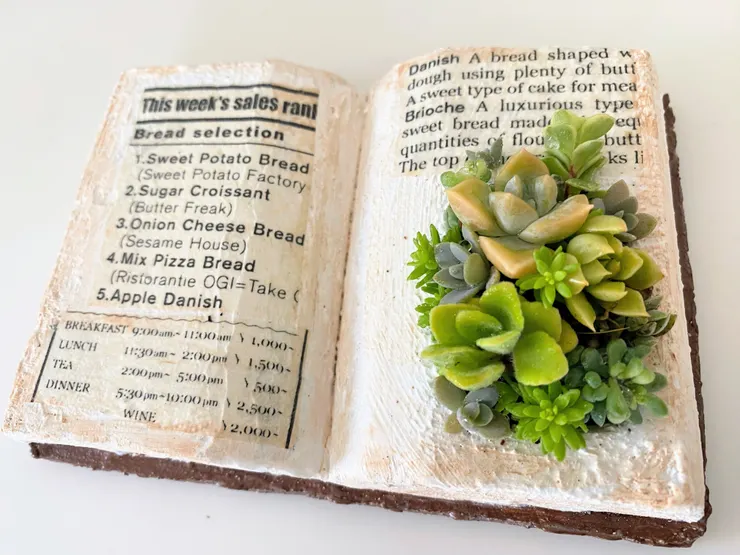 This week's sales ran
Bread selection
1.Sweet Potato Bread
(Sweet Potato Factory
2.Sugar Croissant
(Butter Freak)
3.Onion Cheese Bread
(Sesame House)
4.Mix Pizza Bread
(Ristorantie OGI=Take (
5.Apple Danish
BREAKFAST 9:00am~11:00am \ 1,000~
LUNCH 11:30am~ 2:00pm \ 1,500~
TEA 2:00pm~ 5:00pm \ 500~
DINNER 5:30pm~10:00pm \ 2,500~
WINE \ 2,000~
Danish A bread shaped w
dough using plenty of butt
A sweet type of cake for mea
Brioche A luxurious type
sweet bread made equ
quantities of flou butt
The top ks li